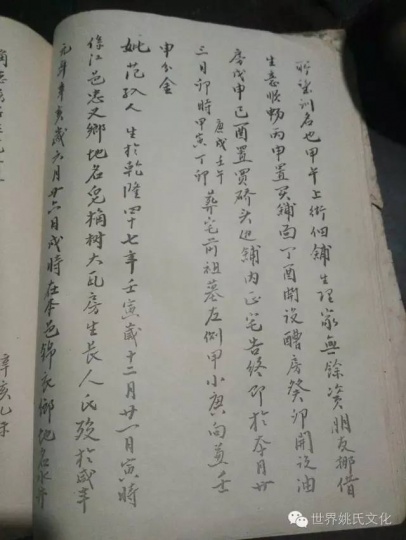 聆梁训名也甲午上街佃铺生理家無餘资朋友挪借
生意顺畅丙申置买鋪面丁酉開設醩房癸卯開設油
房戊申己酉置買硚头迎鋪内正宅告终即於本月廿
三日卯時甲寅丁卯庚戌壬午葬宅前祖墓左側甲山庚向兼壬
申分金
姚范孺人生於乾隆四十七年壬寅歲十二月廿一日寅時
係江邑忠义鄉地名兒桷树大瓦房生長人氏殁於咸丰
元年辛亥歲六月廿六日戌時在本邑锦衣鄉地名水井
辛亥乙未
世界姚氏文化